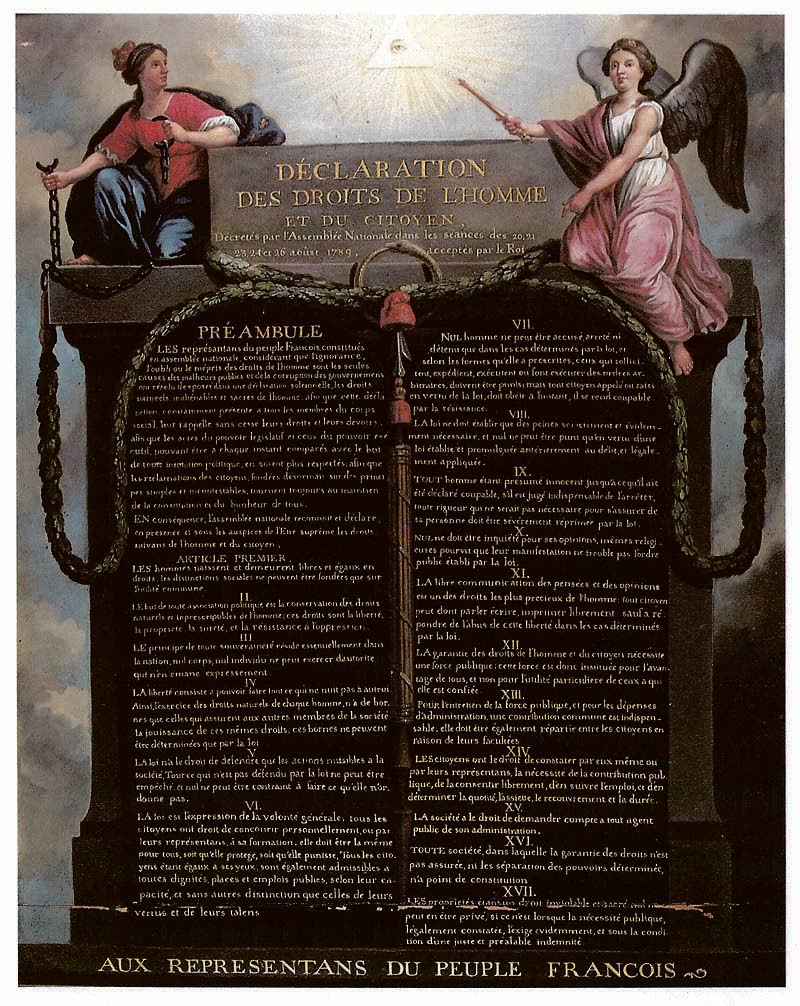 DÉCLARATION
DES DROITS DE L'HOMME
ET DU CITOYEN,
Décretés par l'Assemblée Nationale dans les séances des 20, 21
23, 24 et 26 aoûst 1789, acceptés par le Roi
PRÉAMBULE
LES représentans du peuple François, constitués
en assemblée nationale, considérant que l'ignorance,
l'oubli ou le mépris des droits de l'homme sont les seules
causes des malheurs publics et de la corruption des gouvernemens
ont résolu d'exposer dans une déclaration solemnelle, les droits
naturels, inaliénables et sacrés de l'homme; afin que cette décla
ration, constamment présente a tous les membres du corps
social, leur rappelle sans cesse leurs droits et leurs devoirs,
afin que les actes du pouvoir legislatif et ceux du pouvoir exé
cutif, pouvant être a chaque instant comparés avec le but
de toute institution politique, en soient plus respectés; afin que
les reclamations des citoyens, fondées desormais sur des princi
pes simples et incontestables, tournent toujours au maintien
de la constitution et du bonheur de tous.
EN conséquence, l'assemblée nationale reconnoit et déclare,
en presence et sous les auspices de l'Etre suprême les droits
suivans de l'homme et du citoyen,
ARTICLE PREMIER.
LES hommes naissent et demeurent libres et égaux en
droits, les distinctions sociales ne peuvent être fondées que sur
l'utilité commune,
II.
LE but de toute association politique est la conservation des droits
naturels et inprescriptibles de l'homme; ces droits sont la liberté,
la propriete, la sureté, et la résistance à l'oppression.
III
LE principe de toute souveraineté réside essentiellement dans
la nation, nul corps, nul individu ne peut exercer d'autorité
qui n'en emane expressement.
IV
LA liberté consiste a pouvoir faire tout ce qui ne nuit pas à autrui.
Ainsi, l'exercice des droits naturels de chaque homme, n'a de bor-
nes que celles qui assurent aux autres membres de la société
la jouissance de ces mêmes droits; ces bornes ne peuvent
être déterminées que par la loi
V.
LA loi n'a le droit de défendre que les actions nuisibles a la
société. Tout ce qui n'est pas défendu par la loi ne peut être
empéché et nul ne peut être contraint à faire ce qu'elle n'or-
donne pas.
VI.
LA loi est l'expression de la volonté générale; tous les
citoyens ont droit de concourir personnellement, ou par
leurs représentans, à sa formation; elle doit être la même
pour tous, soit qu'elle protege, soit qu'elle punisse, Tous les cito-
yens étant égaux a ses yeux, sont également admissibles a
toutes dignités, places et emplois publics, selon leur ca-
pacité, et sans autres distinction que celles de leurs
vertus et de leurs talens
VII.
NUL homme ne peut être accusé, arreté ni
détenu que dans les cas déterminés par la loi, et
selon les formes qu'elle a prescrites, ceux qui sollici
tent, expédient, exécutent ou font exécuter des ordres ar-
bitraires, doivent être punis; mais tout citoyen appelé ou saisi
en vertu de la loi, doit obéir a l'instant, il se rend coupable
par la résistance.
VIII.
LA loi ne doit établir que des peines strictement et évidem-
ment nécessaire, et nul ne peut être puni qu'en vertu d'une
loi établie et promulguée antérierement au délit, et légale-
ment appliquée.
IX.
TOUT homme étant présumé innocent jusqu'a ce qu'il ait
été déclaré coupable, s'il est jugé indispensable de l'arrêter,
toute rigueur qui ne serait pas nécessaire pour s'assurer de
sa personne doit être sévèrement réprimée par la loi.
X.
NUL ne doit être inquiété pour ses opinions, mêmes religi
euses pourvu que leur manifestation ne trouble pas l'ordre
public établi par la loi.
XI.
LA libre communication des pensées et des opinions
est un des droits les plus precieux de l'homme; tout citoyen
peut dont parler écrire, imprimer librement; sauf a ré
pondre de l'abus de cette liberté dans les cas déterminés
par la loi.
XII.
LA garantie des droits de l'homme et du citoyen nécessite
une force publique; cette force est donc instituée pour l'avan-
tage de tous, et non pour l'utilité particuliere de ceux a qui
elle est confiée.
XIII.
POUR l'entretien de la force publique, et pour les dépenses
d'administration, une contribution commune est indispen-
sable, elle doit être également répartie entre les citoyens en
raison de leurs facultées.
XIV.
LES citoyens ont le droit de constater par eux même ou
par leurs représentans, la nécessité de la contribution pub-
lique, de la consentir librement, d'en suivre l'emploi, et d'en
déterminer la quotité, l'assiette, le recouvrement et la durée.
XV.
LA société a le droit de demander compte a tout agent
public de son administration.
XVI.
TOUTE société, dans laquelle la garantie des droits n'est
pas assurée, ni les séparation des pouvoirs déterminée,
n'a point de constitution
XVII.
LES proprietés étant un droit inviolable et sacré, nul ne
peut en être privé, si ce n'est lorsque la nécessité publique,
légalement constatée, l'exige evidemment, et sous la condi-
tion d'une juste et préalable indemnité.
AUX REPRESENTANS DU PEUPLE FRANCOIS